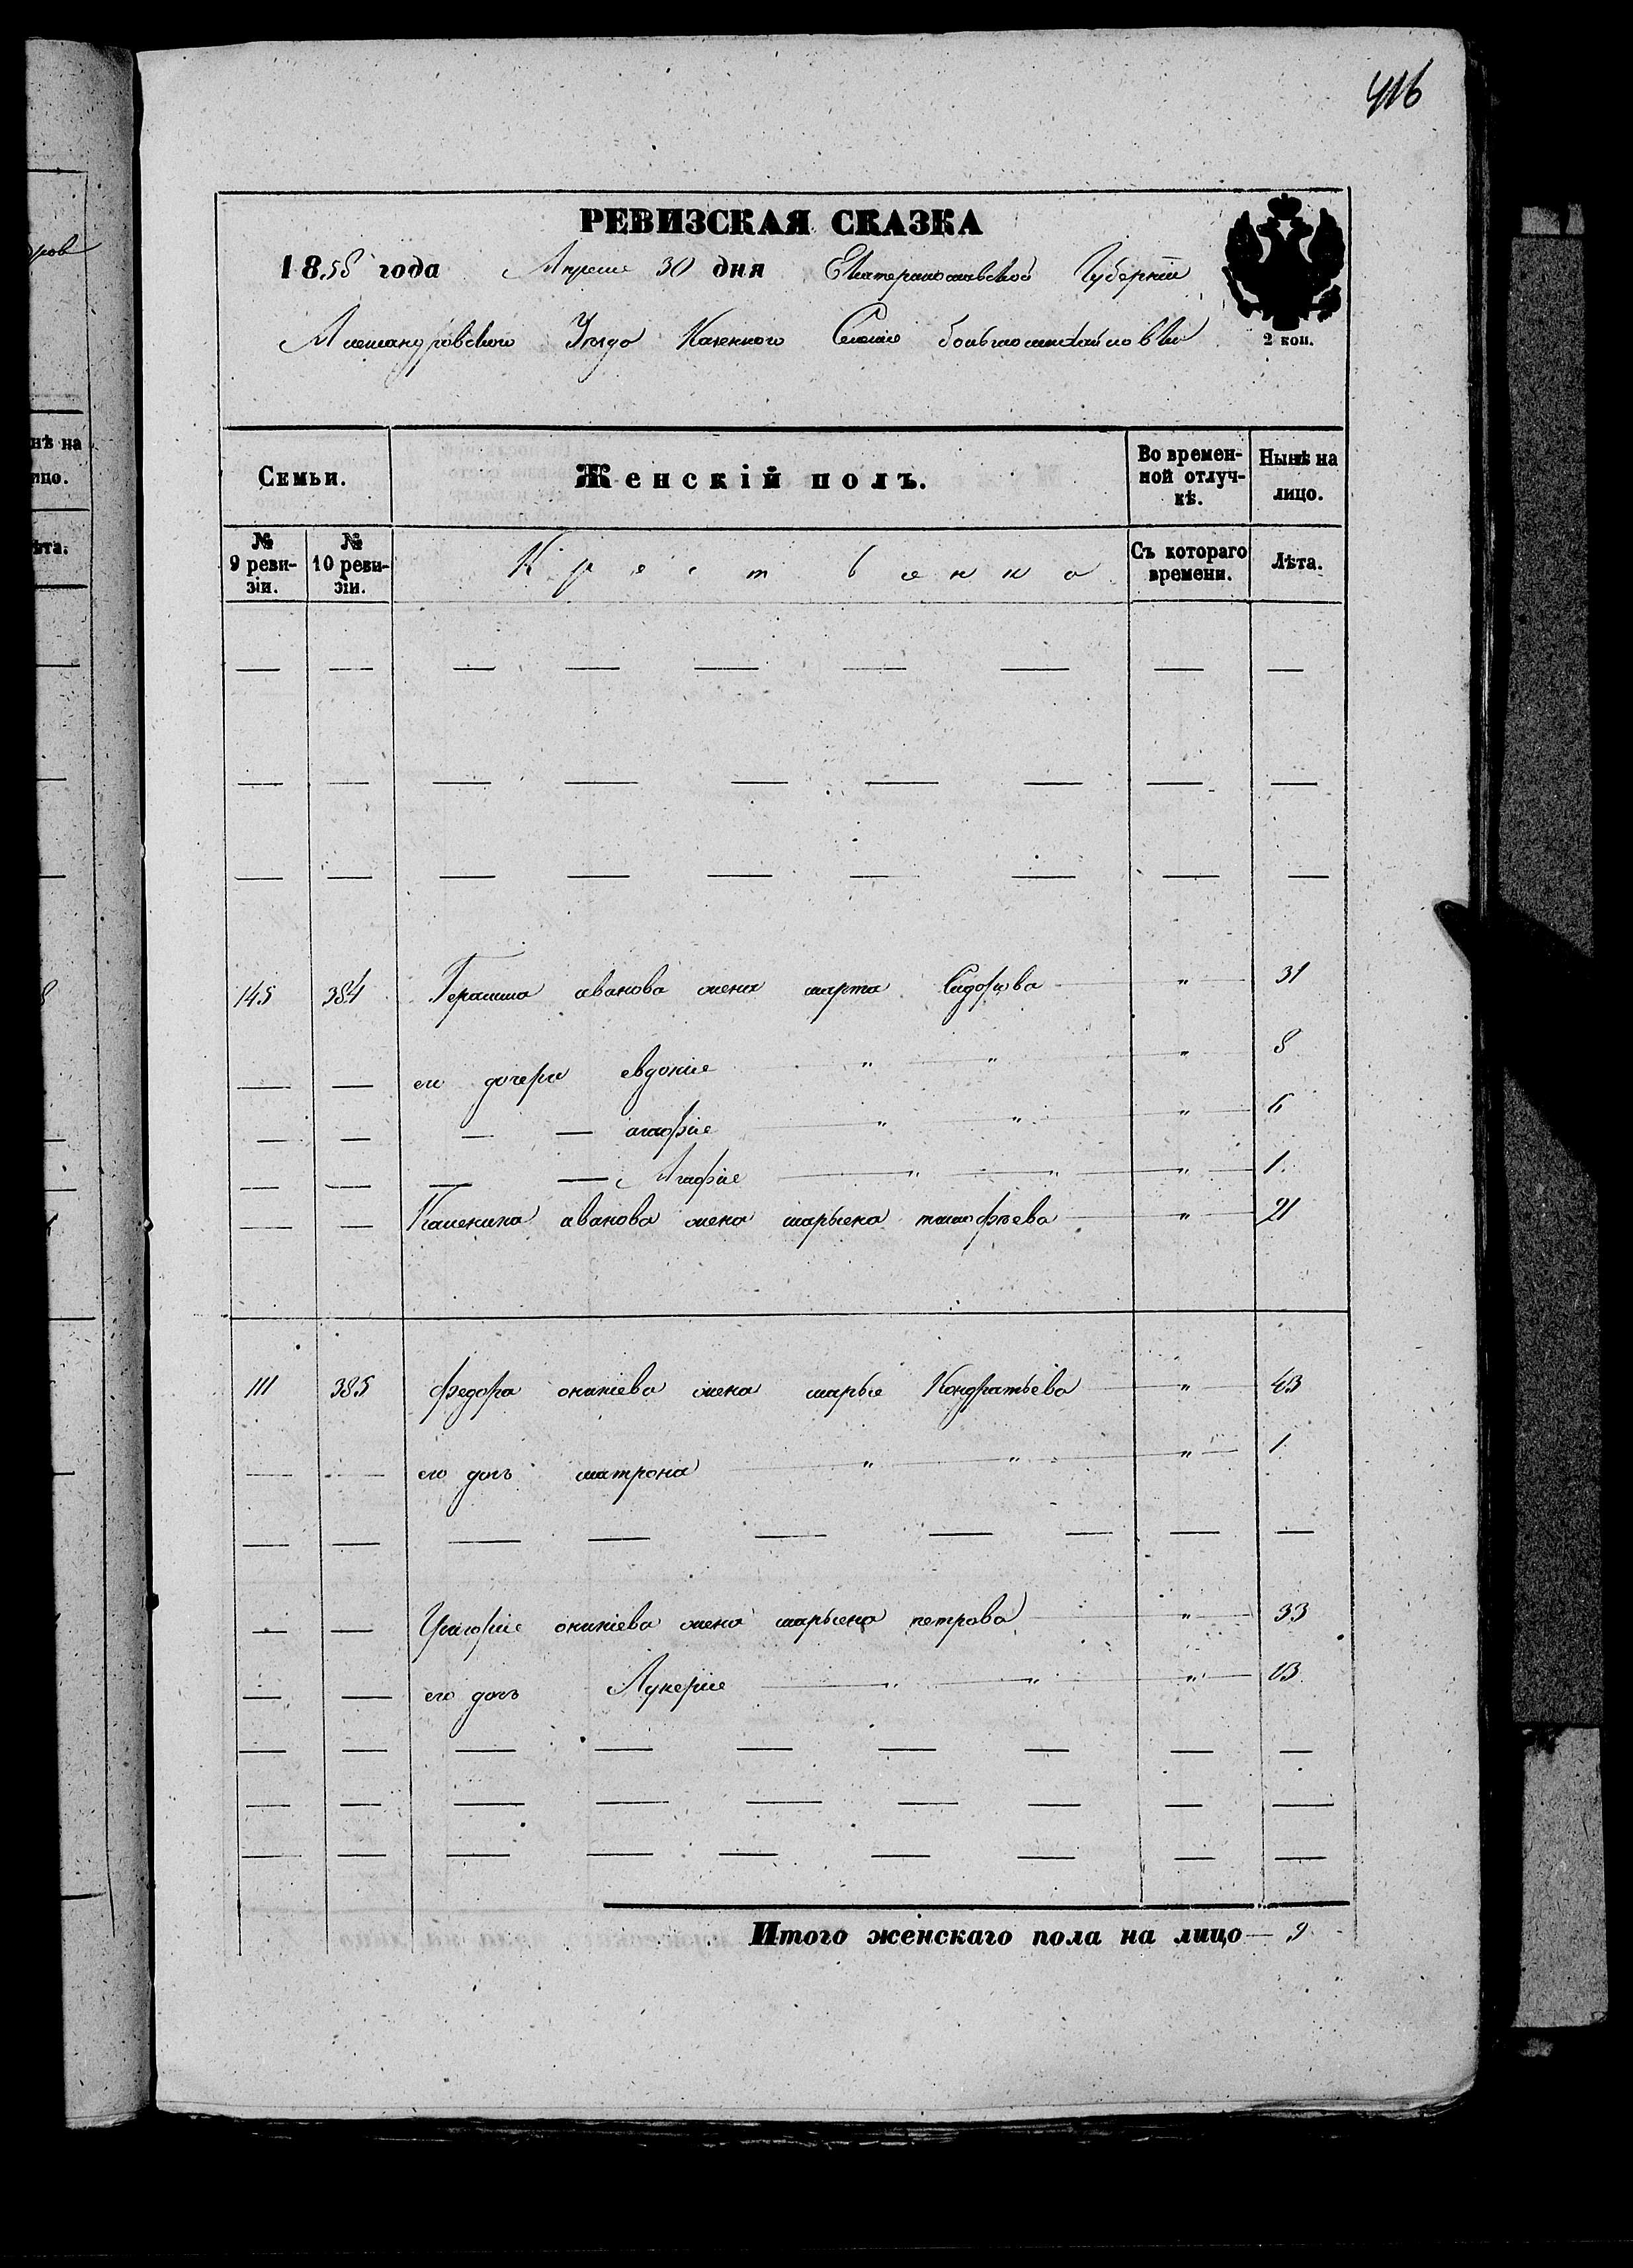 416
РЕВИЗСКАЯ СКАЗКА
1858 года Апреле 30 дня Екатеринославской Губернiи
Александровского Уезда Казенного Селенiе большомихайловки
2 коп.
Семьи. Женскiй полъ. Во времен-ной отлуч-кѣ. Нынѣ на лицо.
№ 9 реви-зiи. № 10 реви-зiи. Крестьянка Съ котораго времени. Лѣта.
145 384 Герасима иванова жена марта Сидорова " 31
его дочери евдокие " " " 8
" " " 6
Агафие " " " 1
иванова жена марьена тимофеева " 21
111 385 федора оникiева жена марье Кондратьева " 43
его дочь матрона " " " 1
Григорие оникiева жена марьена петрова " 33
его дочь Лукерiе " " " 13
Итого женскаго пола на лицо 9
нѣ на
ицо.
ѣта.